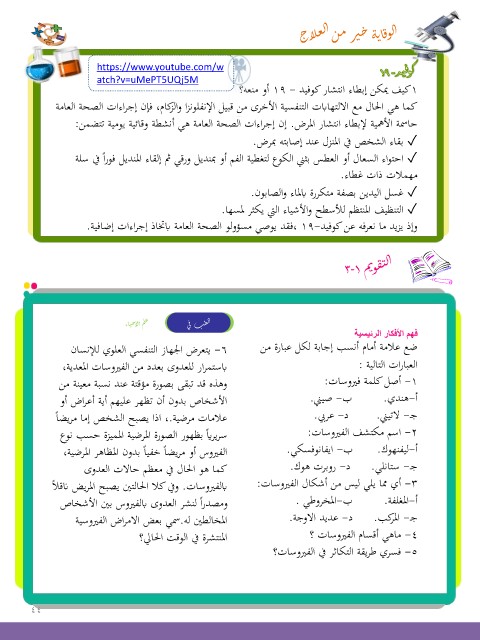 الوقاية خير من العلاج
https://www.youtube.com/w
atch?v=uMePT5UQj5M
كوفيد-١٩
١كيف يمكن إبطاء انتشار كوفيد – ١٩ أو منعه؟
كما هي الحال مع الالتهابات التنفسية الأخرى من قبيل الإنفلونزا والزكام، فإن إجراءات الصحة العامة
حاسمة الأهمية لإبطاء انتشار المرض. إن إجراءات الصحة العامة هي أنشطة وقائية يومية تتضمن:
✓ بقاء الشخص في المنزل عند إصابته بمرض.
✓ احتواء السعال أو العطس بثني الكوع لتغطية الفم أو بمنديل ورقي ثم إلقاء المنديل فوراً في سلة
مهملات ذات غطاء.
✓ غسل اليدين بصفة متكررة بالماء والصابون.
✓ التنظيف المنتظم للأسطح والأشياء التي يكثر لمسها.
وإذ يزيد ما نعرفه عن كوفيد-١٩ ،فقد يوصي مسؤولو الصحة العامة باتخاذ إجراءات إضافية.
التقويم ١-٣
فهم الأفكار الرئيسية
ضع علامة أمام أنسب إجابة لكل عبارة من
العبارات التالية :
١- أصل كلمة فيروسات:
أ-هندي. ب- صيني.
جـ- لاتيني. د- عربي.
٢- اسم مكتشف الفيروسات:
أ-ليفنهوك. ب- ايفانوفسكي.
جـ- ستانلي. د- روبرت هوك.
٣- أي مما يلي ليس من أشكال الفيروسات:
أ-المغلفة. ب-المخروطي .
جـ- المركب. د- عديد الاوجة.
٤- ماهي أقسام الفيروسات ؟
٥- فسري طريقة التكاثر في الفيروسات؟
علم الاحياء
٦- يتعرض الجهاز التنفسي العلوي للإنسان
باستمرار للعدوى بعدد من الفيروسات المعدية،
وهذه قد تبقى بصورة مؤقتة عند نسبة معينة من
الأشخاص بدون أن تظهر عليهم أية أعراض أو
علامات مرضية.، اذا يصبح الشخص إما مريضاً
سريرياً بظهور الصورة المرضية المميزة حسب نوع
الفيروس أو مريضاً خفياً بدون المظاهر المرضية،
كما هو الحال في معظم حالات العدوى
بالفيروسات. وفي كلا الحالتين يصبح المريض ناقلاً
ومصدراً لنشر العدوى بالفيروس بين الأشخاص
المخالطين له.سمي بعض الامراض الفيروسية
المنتشرة في الوقت الحالي؟
٤٤